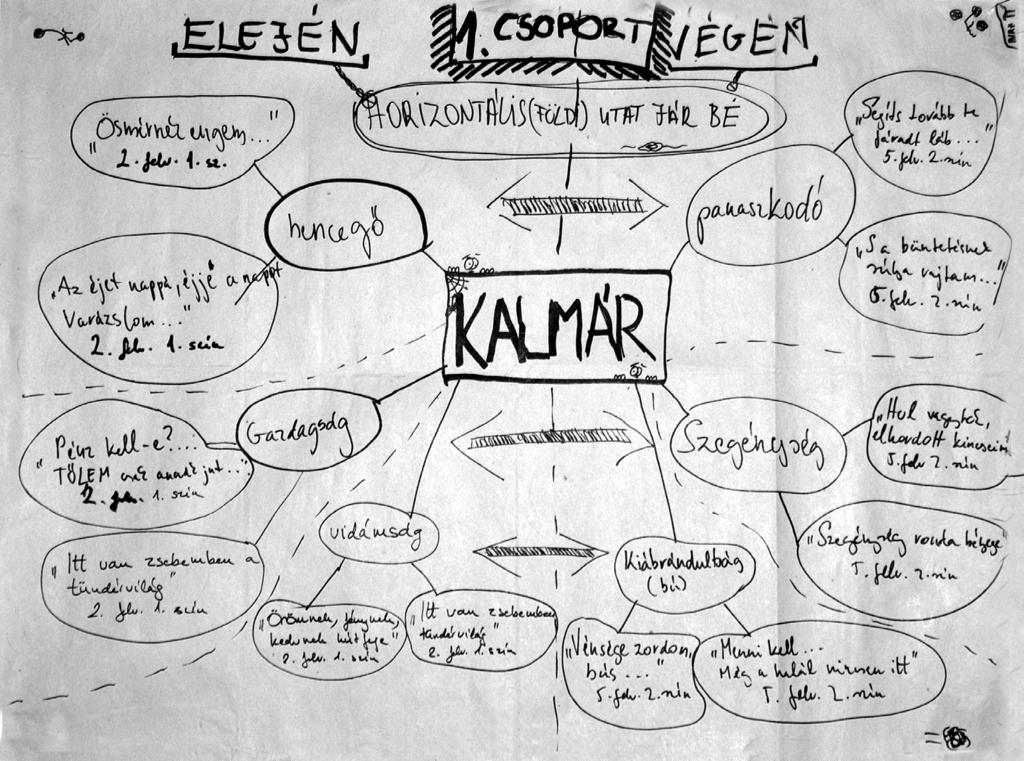 ELEJÉN
1. CSOPORT
VÉGÉN
HORIZONTÁLIS (FÖLDI) UTAT JÁR BÉ
"Ösmérnéd engem..."
2. felv. 1. sz.
hencegő
"Az éjet nappá, éjjé a napot
varázslom..."
2. felv. 1. szín
panaszkodó
"Segíts tovább te
fáradt láb..."
5. felv. 2. szín
"S a büntetésnek
súlya rajtam..."
5. felv. 2. szín
KALMÁR
Gazdagság
"Pénz kell-e?...
TŐLEM csak annak jut..."
2. felv. 1. szín
"Itt van zsebemben a
tündérvilág"
2. felv. 1. szín
vidámság
"Örömnek, fénynek,
kedvnek kútfeje"
2. felv. 1. szín
"Itt van zsebemben
tündérvilág"
2. felv. 1. szín
Szegénység
"Hol vagytok,
elhordott kincseim
5. felv. 2. szín
"Szegénység ronda bélyege"
5. felv. 2. szín
Kiábrándultság
(bú)
"Vénsége zordon,
bús..."
5. felv. 2. szín
"Menni kell...
Még a halál sincsen itt"
5. felv. 2. szín